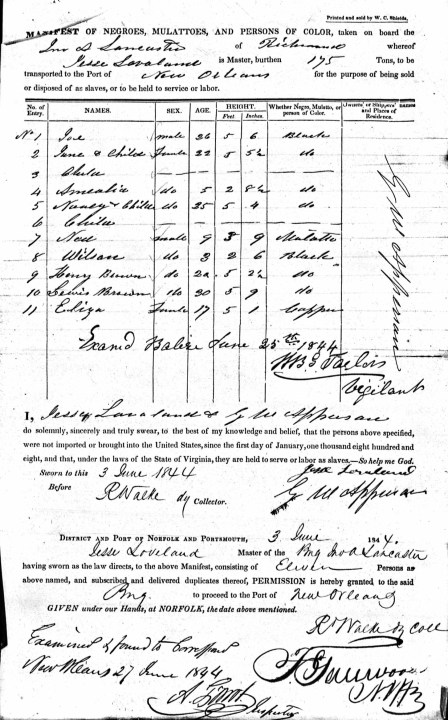 Printed and sold by W. C. Shields.
MANIFEST OF NEGROES, MULATTOES, AND PERSONS OF COLOR, taken on board the
Jno S Lancaster of Richmond whereof
Jesse Loveland is Master, burthen 175 Tons, to be
transported to the Port of New Orleans for the purpose of being sold
or disposed of as slaves, or to be held to service or labor.
No. of Entry. NAMES. SEX. AGE. HEIGHT. Feet Inches. Whether Negro, Mulatto, or person of Color. Owners' or Shippers' names and Places of Residence.
No 1 Joe male 26 5 6 Black
2 June & Child Female 22 5 5½ do
3 Child — — — —
4 Amealia do 5 2 8½ do
5 Nancy & Childe do 25 5 4 do
6 Child — — — —
7 Ned male 9 3 9 Mulatto
8 Wilson do 3 2 6 Black
9 Henry Brown do 22 5 2½ do
10 Lewis Brown do 30 5 9 do
11 Eliza Female 17 5 1 Copper
G M Apperson
Examd Balize June 25th 1844
W B G Taylor
Vigilant
I, Jesse Loveland & G M Apperson
do solemnly, sincerely and truly swear, to the best of my knowledge and belief, that the persons above specified,
were not imported or brought into the United States, since the first day of January, one thousand eight hundred and
eight, and that, under the laws of the State of Virginia, they are held to serve or labor as slaves.—So help me God.
Sworn to this 3 June 1844 Jesse Loveland
Before R Walke dy Collector. G M Apperson
DISTRICT AND PORT OF NORFOLK AND PORTSMOUTH, 3 June 1844.
Jesse Loveland Master of the Brig Lancaster
having sworn as the law directs, to the above Manifest, consisting of Eleven Persons as
above named, and subscribed and delivered duplicates thereof, PERMISSION is hereby granted to the said
Brig to proceed to the Port of New Orleans
GIVEN under our Hands, at NORFOLK, the date above mentioned.
R Walke dy Coll
Examined & found to Correspond
New Orleans 27 June 1844
Inspector